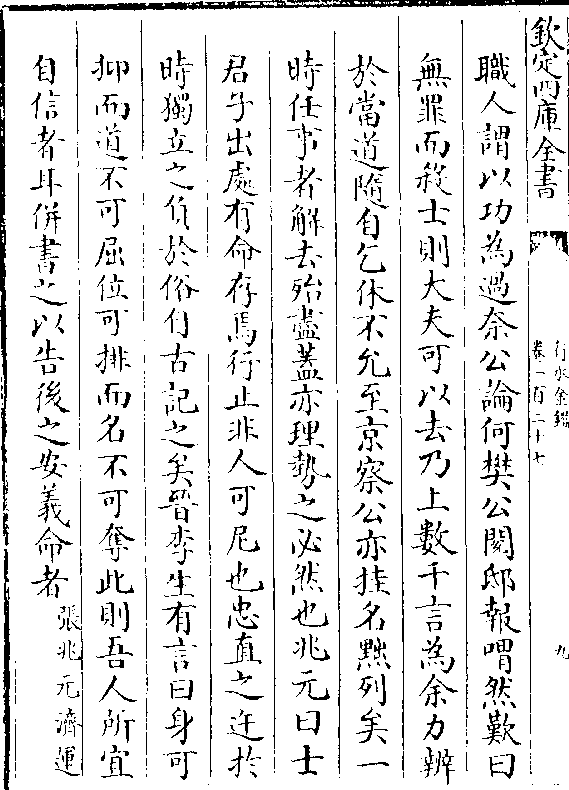 欽定四庫全書
行水金鑑
卷一百二十七
九
職人謂以功為過奈公論何樊公閱邸報喟然歎曰
無罪而殺士則大夫可以去乃上數千言為余力辨
於當道隨自乞休不允至京察公亦挂名黜列矣一
時任事者解去殆盡蓋亦理勢之必然也兆元曰士
君子出處有命存焉行止非人可尼也忠直之迕於
時獨立之負於俗自古記之矣晉李生有言曰身可
抑而道不可屈位可排而名不可奪此則吾人所宜
自信者耳併書之以告後之安義命者
張兆元濟運